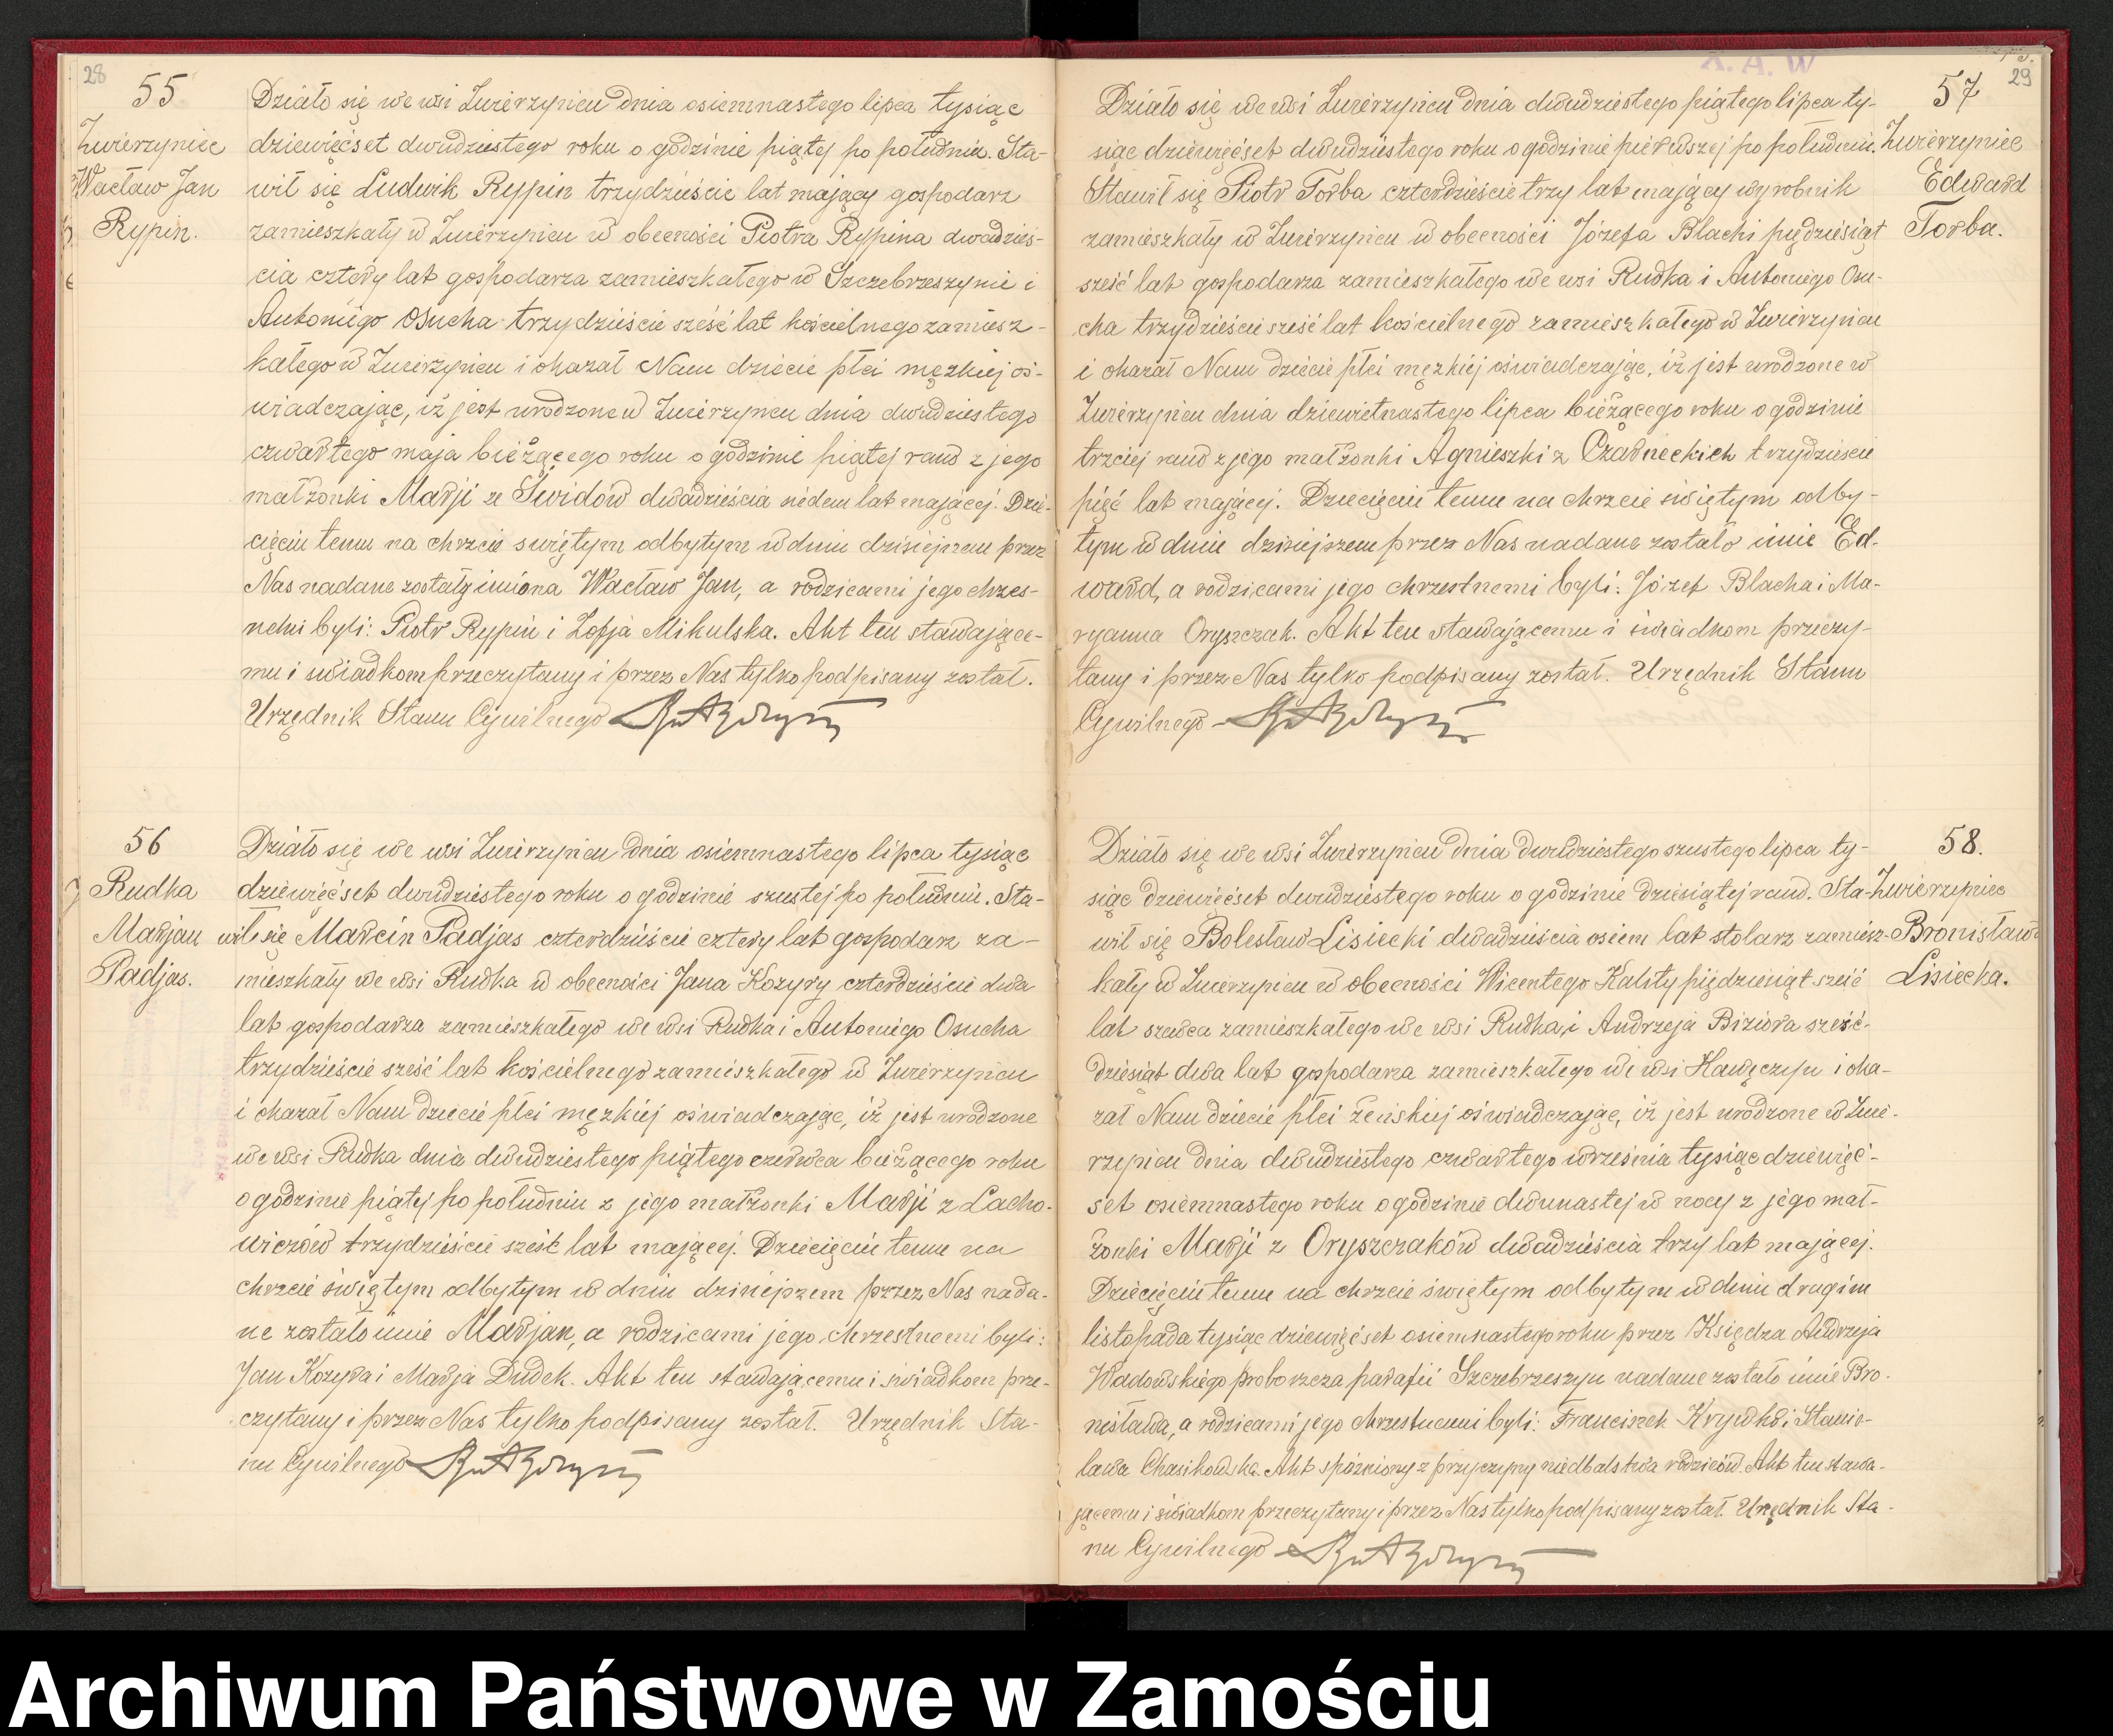 28
55
Zwierzyniec
Wacław Jan
Rypin.
Działo się we wsi Zwierzyńcu dnia osiemnastego lipca tysiąc
dziewięćset dwudziestego roku o godzinie piątej po południu. Sta-
wił się Ludwik Rypin trzydzieście lat mający gospodarz
zamieszkały w Zwierzyńcu w obecności Piotra Rypina dwadzieś-
cia cztery lat gospodarza zamieszkałego w Szczebrzeszynie i
Antoniego Osucha trzydzieście sześć lat kościelnego zamiesz-
kałego w Zwierzyńcu i okazał Nam dziecie płci męzkiej oś-
wiadczając, iż jest urodzone w Zwierzyńcu dnia dwudziestego
czwartego maja bieżącego roku o godzinie piątej rano z jego
małżonki Marji ze Świdów dwadzieścia siedem lat mającej. Dzie-
cięciu temu na chrzcie świętym odbytym w dniu dzisiejszem przez
Nas nadane zostały imiona Wacław Jan, a rodzicami jego chrzes-
nemi byli: Piotr Rypin i Zofja Mikulska. Akt ten stawające-
mu i świadkom przeczytany i przez Nas tylko podpisany został.
Urzędnik Stanu Cywilnego
56
Rudka
Marjan
Padjas.
Działo się we wsi Zwierzyńcu dnia osiemnastego lipca tysiąc
dziewięćset dwudziestego roku o godzinie szustej po południu. Sta-
wił się Marcin Padjas czterdzieście cztery lat gospodarz za-
mieszkały we wsi Rudka w obecności Jana Kozyry czterdzieście dwa
lat gospodarza zamieszkałego we wsi Rudka i Antoniego Osucha
trzydzieście sześć lat kościelnego zamieszkałego w Zwierzyńcu
i okazał Nam dziecie płci męzkiej oświadczając, iż jest urodzone
we wsi Rudka dnia dwudziestego piątego czerwca bieżącego roku
o godzinie piątej po południu z jego małżonki Marji z Lacho-
wiczów trzydzieście sześć lat mającej. Dziecięciu temu na
chrzcie świętym odbytym w dniu dzisiejszem przez Nas nada-
ne zostało imie Marjan, a rodzicami jego chrzestnemi byli:
Jan Kozyra i Marja Dudek. Akt ten stawającemu i świadkom prze-
czytany i przez Nas tylko podpisany został. Urzędnik Sta-
nu Cywilnego
X. A. W
29
57
Zwierzyniec
Edward
Torba.
Działo się we wsi Zwierzyńcu dnia dwudziestego piątego lipca ty-
siąc dziewięćset dwudziestego roku o godzinie pierwszej po południu.
Stawił się Piotr Torba czterdzieście trzy lat mający wyrobnik
zamieszkały w Zwierzyńcu w obecności Józefa Blachi piędziesiąt
sześć lat gospodarza zamieszkałego we wsi Rudka i Antoniego Osu-
cha trzydzieście sześć lat kościelnego zamieszkałego w Zwierzyńcu
i okazał Nam dziecie płci męzkiej oświadczając, iż jest urodzone w
Zwierzyńcu dnia dziewietnastego lipca bieżącego roku o godzinie
trzciej rano z jego małżonki Agnieszki z Czarneckich trzydzieście
pięć lat mającej. Dziecięciu temu na chrzcie świętym odby-
tym w dniu dzisiejszem przez Nas nadane zostało imie Ed-
ward, a rodzicami jego chrzestnemi byli: Józef Blacha i Ma-
ryanna Oryszczak. Akt ten stawającemu i świadkom przeczy-
tany i przez Nas tylko podpisany został. Urzędnik Stanu
Cywilnego
58.
Zwierzyniec
Bronisława
Lisiecka.
Działo się we wsi Zwierzyńcu dnia dwudziestego szustego lipca ty-
siąc dziewięćset dwudziestego roku o godzinie dziesiątej rano. Sta-
wił się Bolesław Lisiecki dwadzieścia osiem lat stolarz zamiesz-
kały w Zwierzyńcu w obecności Wicentego Kality piędziesiąt sześć
lat szewca zamieszkałego we wsi Rudka, i Andrzeja Biziora sześć-
dziesiąt dwa lat gospodarza zamieszkałego we wsi Hawęczyn i oka-
zał Nam dziecie płci żeńskiej oświadczając, iż jest urodzone w Zwie-
rzyńcu dnia dwudziestego czwartego września tysiąc dziewięć-
set osiemnastego roku o godzinie dwunastej w nocy z jego mał-
żonki Marji z Oryszczaków dwadzieścia trzy lat mającej.
Dziecięciu temu na chrzcie świętym odbytym w dniu drugim
listopada tysiąc dziewięćset osiemnastego roku przez Księdza Andrzeja
Wadowskiego proboszcza parafii Szczebrzeszyn nadane zostało imie Bro-
nisława, a rodzicami jego chrzestnemi byli: Franciszek Krywko i Stanis-
ława Chasikowska. Akt spóźniony z przyczyny niedbalstwa rodziców. Akt ten stawa-
jącemu i świadkom przeczytany i przez Nas tylko podpisany został. Urzędnik Sta-
nu Cywilnego
Archiwum Państwowe w Zamościu